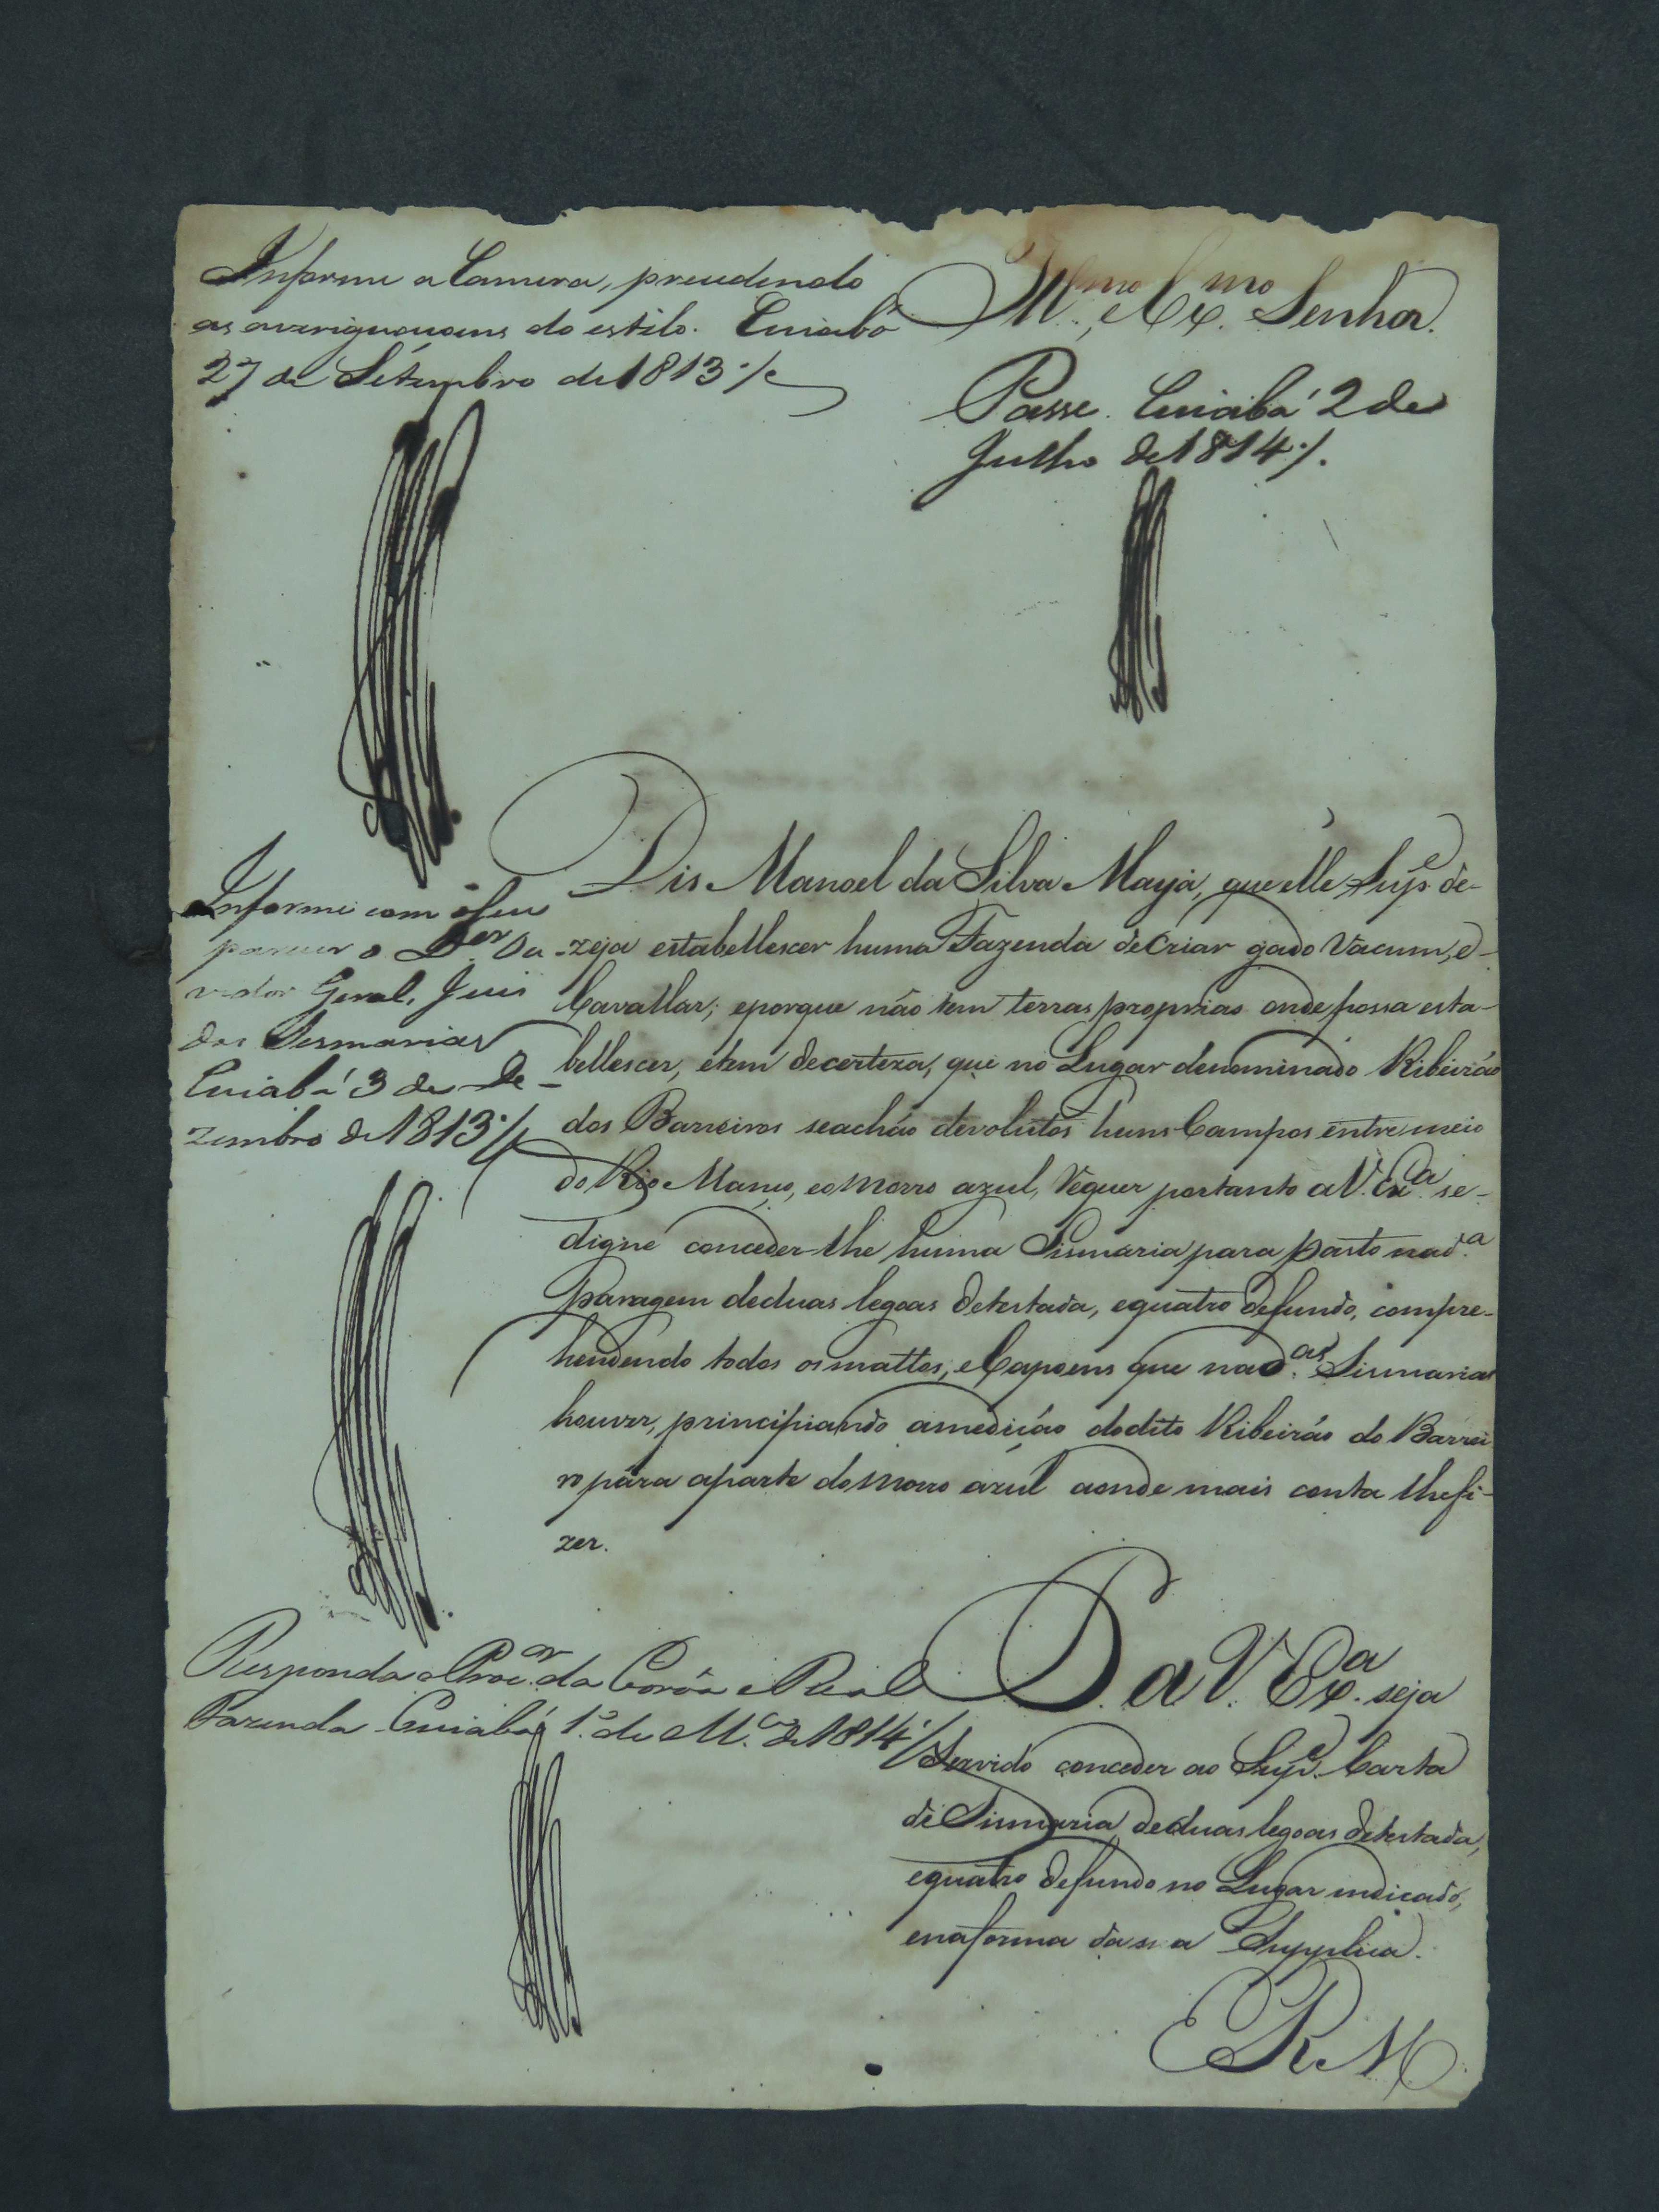 Informe a Camera, precedendo
as averiguaçoens do estilo. Cuiabá
27 de Setembro de 1813
Ill.mo, e Ex.mo Senhor.
Passe. Cuiabá 2 de
Julho de 1814
Dis Manoel da Silva Maya, que elle Sup.e de-
zeja estabellescer huma Fazenda de Criar gado Vacum, e
Cavallar; eporque não tem terras proprias onde possa esta-
bellescer, etem decerteza, que no Lugar denominado Ribeirão
dos Barreiros seachão devolutos huns Campos entre meio
do Rio Manço, eo Morro azul, Requer portanto a V. Ex.a se-
digne conceder-lhe huma Sismaria para pasto nad.a
paragem deduas legoas detestada, equatro defundo, compre-
hendendo todos osmattos, eCapoens que nad.as Sismarias
houver, principiando amedição dodito Ribeirão do Barrei
ro para aparte do Morro azul aonde mais conta lhefi-
zer.
Informe com oseu
parecer o D.er Ou-
vidor Geral, Juis
das Sesmarias
Cuiabá 3 de De-
zembro de 1813
Responda o Proc.or da Corôa e Real
Fazenda Cuiabá 1.º de M.ço de 1814
P. a V. Ex.a seja
Servido conceder ao Sup.e Carta
de Sismaria deduas legoas detestada,
equatro defundo no Lugar indicado,
enaforma da sua Supplica.
E R M